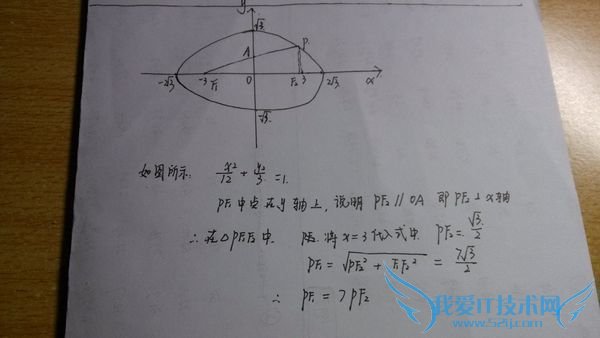 y
√3
A
P
-2√3 -3 F₁ O F₂ 3 2√3 x
-√3
如图所示: x²/12 + y²/3 = 1.
PF₁中点在y轴上, 说明 PF₂ // OA 即 PF₂ ⊥ x轴
∴ 在△PF₁F₂中. 将 x=3 代入式中. PF₂ = √3/2
PF₁ = √(PF₂² + F₁F₂²) = 7√3/2
∴ PF₁ = 7PF₂
我爱IT技术网
www.52ij.com